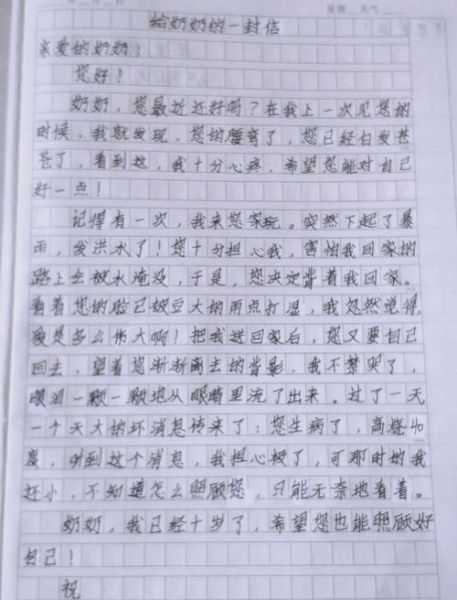 星期 天气
给奶奶的一封信
亲爱的奶奶：
您好！
奶奶，您最近还好吗？在我上一次见您的
时候，我就发现，您的腰弯了，您已经白发苍
苍了，看到这，我十分心疼，希望您能对自己
好一点！
记得有一次，我来您家玩。突然下起了暴
雨，发洪水了！您十分担心我，害怕我回家的
路上会被水淹没，于是，您决定背着我回家。
看着您的脸已被豆大的雨点打湿，我忽然觉得，
爱是多么伟大啊！把我送回家后，您又要自己
回去，望着您渐渐离去的背影，我不禁哭了，
眼泪一颗一颗地从眼睛里流了出来。过了一天
一个天大的坏消息传来了：您生病了，高烧40
度，听到这个消息，我担心极了，可那时的我
还小，不知道怎么照顾您，只能无奈地看着。
奶奶，我已经十岁了，希望您也能照顾好
自己！
祝